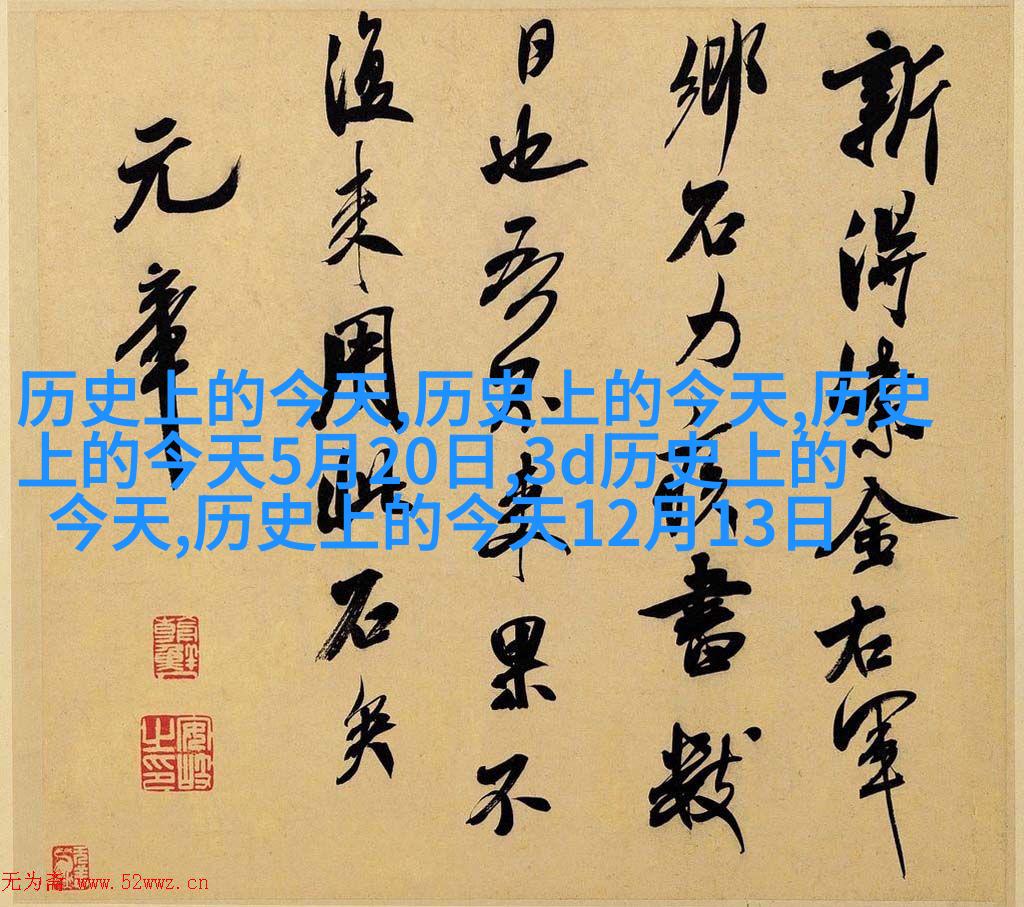 新得紫金右軍
鄉石力疾書數
日也吾不来果不
復来用此石矣
元章
历史上的今天,历史上的今天,历史
上的今天5月20日,3d历史上的
今天,历史上的今天12月13日
无为斋 www.52wwz.cn